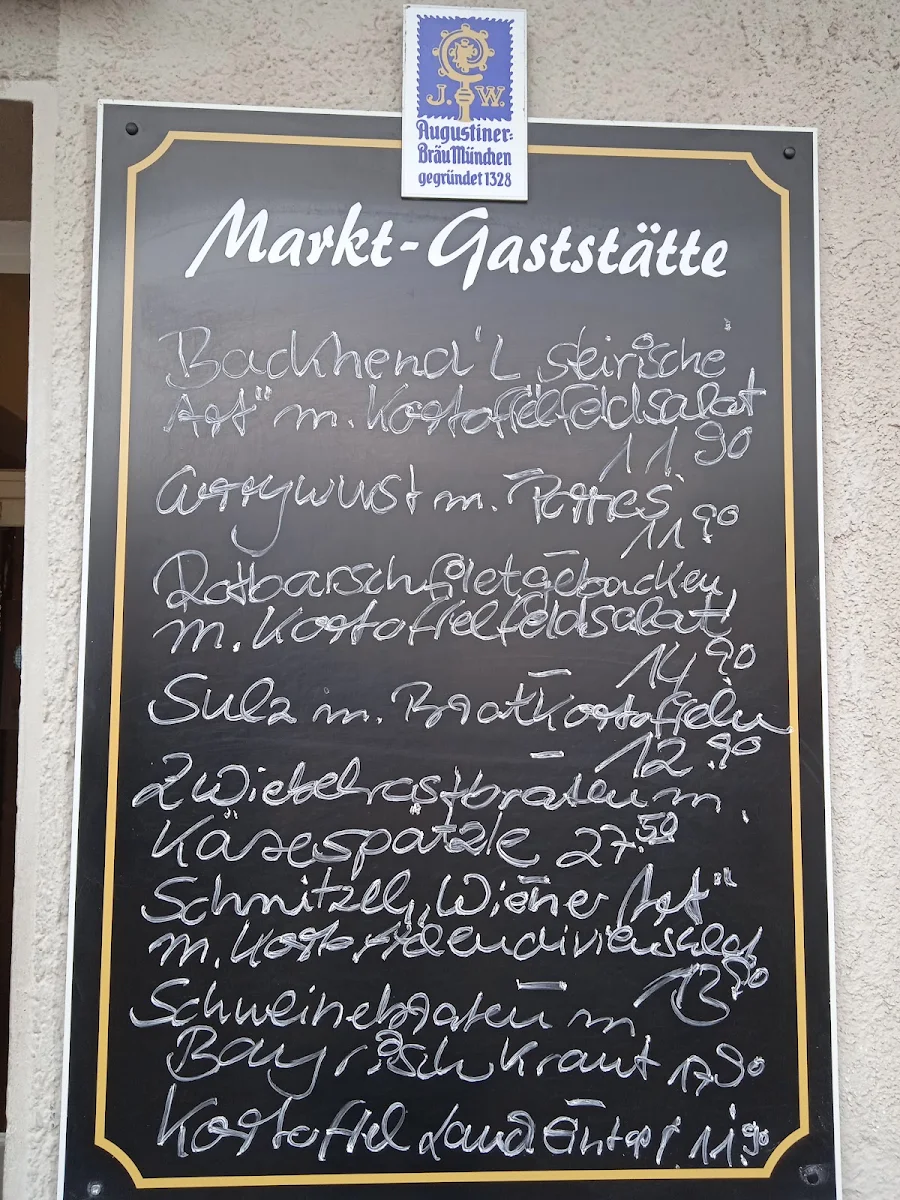 J. W.
Augustiner-
Bräu München
gegründet 1328
Markt-Gaststätte
Backhend'l steirische
Art" m. Kartoffelfeldsalat
11.90
Currywurst m. Pommes
11.90
Rotbarschfilet gebacken
m. Kartoffelfeldsalat
14.90
Sulz m. Bratkartoffeln
12.90
Zwiebelrostbraten m
Käsespätzle 27.50
Schnitzel „Wiener Art"
m. Kartoffelendiviensalat
13.90
Schweinebraten m
Bayrisch Kraut 17.90
Kartoffel Lauch Eintopf 11.90